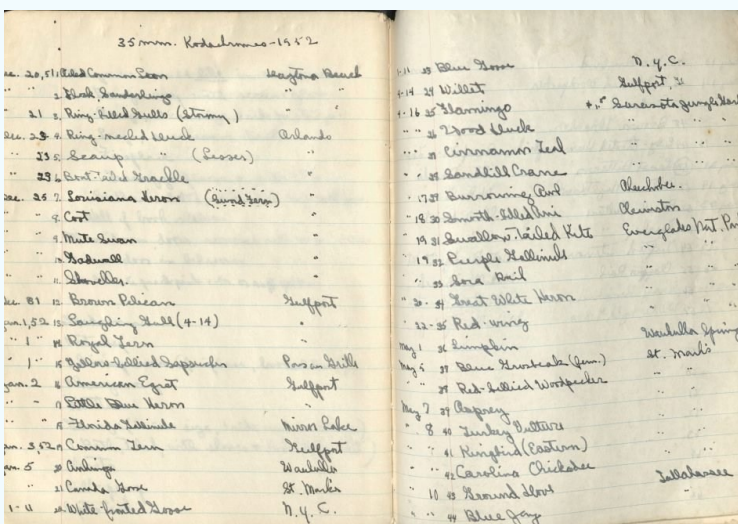 35mm. Kodachromes-1952
Dec. 20,51 1. Common Loon Daytona Beach
2. Sanderling " "
" 21 3. Ring-billed Gulls (Stormy) " "
Dec. 23 4. Ring-necked Duck Orlando
" 23 5. Scaup " (Lesser) "
" 23 6. Boat-tailed Grackle "
Dec. 25 7. Louisiana Heron "
" " 8. Coot "
" " 9. Mute Swan "
" " 10. Gadwall "
" " 11. Shoveller "
Dec. 31 12. Brown Pelican Gulfport
Jan. 1,52 13. Laughing Gull (4-14) "
" 1 " 14. Royal Tern "
" 1 " 15. Yellow-bellied Sapsucker Pass-a-Grille
Jan. 2 16. American Egret Gulfport
" " 17. Little Blue Heron "
" " 18. Florida Gallinule Mirror Lake
Jan. 3,52 19. Common Tern Gulfport
Jan. 5 20. Anhinga Wakulla
" 21. Canada Goose St. Marks
1-11 22. White-fronted Goose N.Y.C.
1-11 23 Blue Goose N.Y.C.
4-14 24 Willet Gulfport
4-16 25 Flamingo Sarasota Jungle
" " 26 Wood Duck " "
" " 27 Cinnamon Teal " "
" " 28 Sandhill Crane " "
" 17 29 Burrowing Owl Okeechobee
" 18 30 Smooth-billed Ani Clewiston
" 19 31 Swallow-Tailed Kite Everglades Nat. Park
" 19 32 Purple Gallinule " "
" " 33 Sora Rail " "
" 20- 34 Great White Heron " "
" 22- 35 Red-wing " "
May 1 36 Limpkin Wakulla Springs
May 5 37 Blue Grosbeak (fem.) St. Marks
" " 38 Red-bellied Woodpecker " "
May 7 39 Osprey " "
" 8 40 Turkey Vulture " "
" " 41 Kingbird (Eastern) " "
" " 42 Carolina Chickadee " "
" 10 43 Ground Dove Tallahassee
" " 44 Blue Jay "